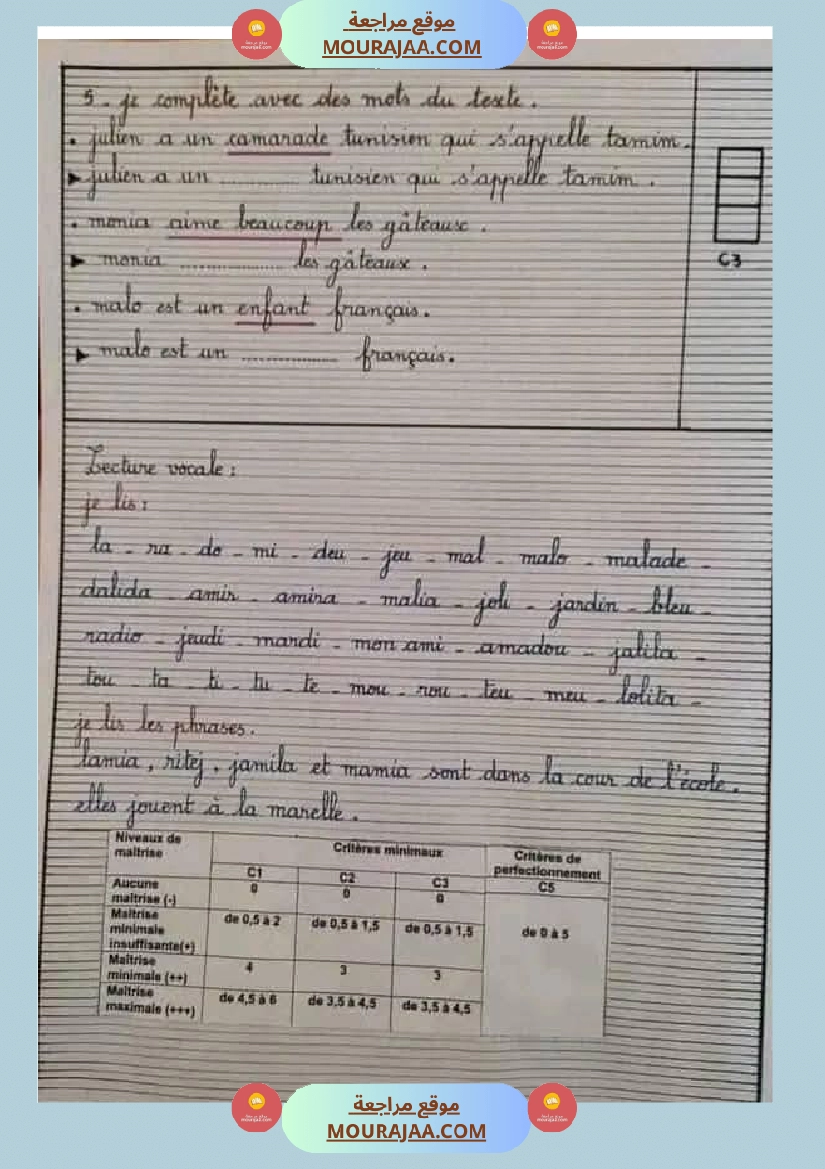 موقع مراجعة
MOURAJAA.COM
5. je complète avec des mots du texte.
• julien a un camarade tunisien qui s'appelle tamim.
► julien a un ............ tunisien qui s'appelle tamim.
• monia aime beaucoup les gâteaux.
► monia .................. les gâteaux.
• malo est un enfant français.
► malo est un ................ français.
C3
Lecture vocale :
je lis :
la - ra - do - mi - deu - jeu - mal - malo - malade -
dalida - amir - amira - malia - joli - jardin - bleu -
radio - jeudi - mardi - mon ami - amadou - jalila -
tou - ta - ti - tu - te - mou - rou - teu - meu - lolita -
je lis les phrases.
lamia, ritej, jamila et mamia sont dans la cour de l'école.
elles jouent à la marelle.
Niveaux de maîtrise Critères minimaux Critères de perfectionnement
C1 C2 C3 C5
Aucune maîtrise (-) 0 0 0
Maîtrise minimale insuffisante(+) de 0,5 à 2 de 0,5 à 1,5 de 0,5 à 1,5 de 0 à 5
Maîtrise minimale (++) 4 3 3
Maîtrise maximale (+++) de 4,5 à 6 de 3,5 à 4,5 de 3,5 à 4,5
موقع مراجعة
MOURAJAA.COM